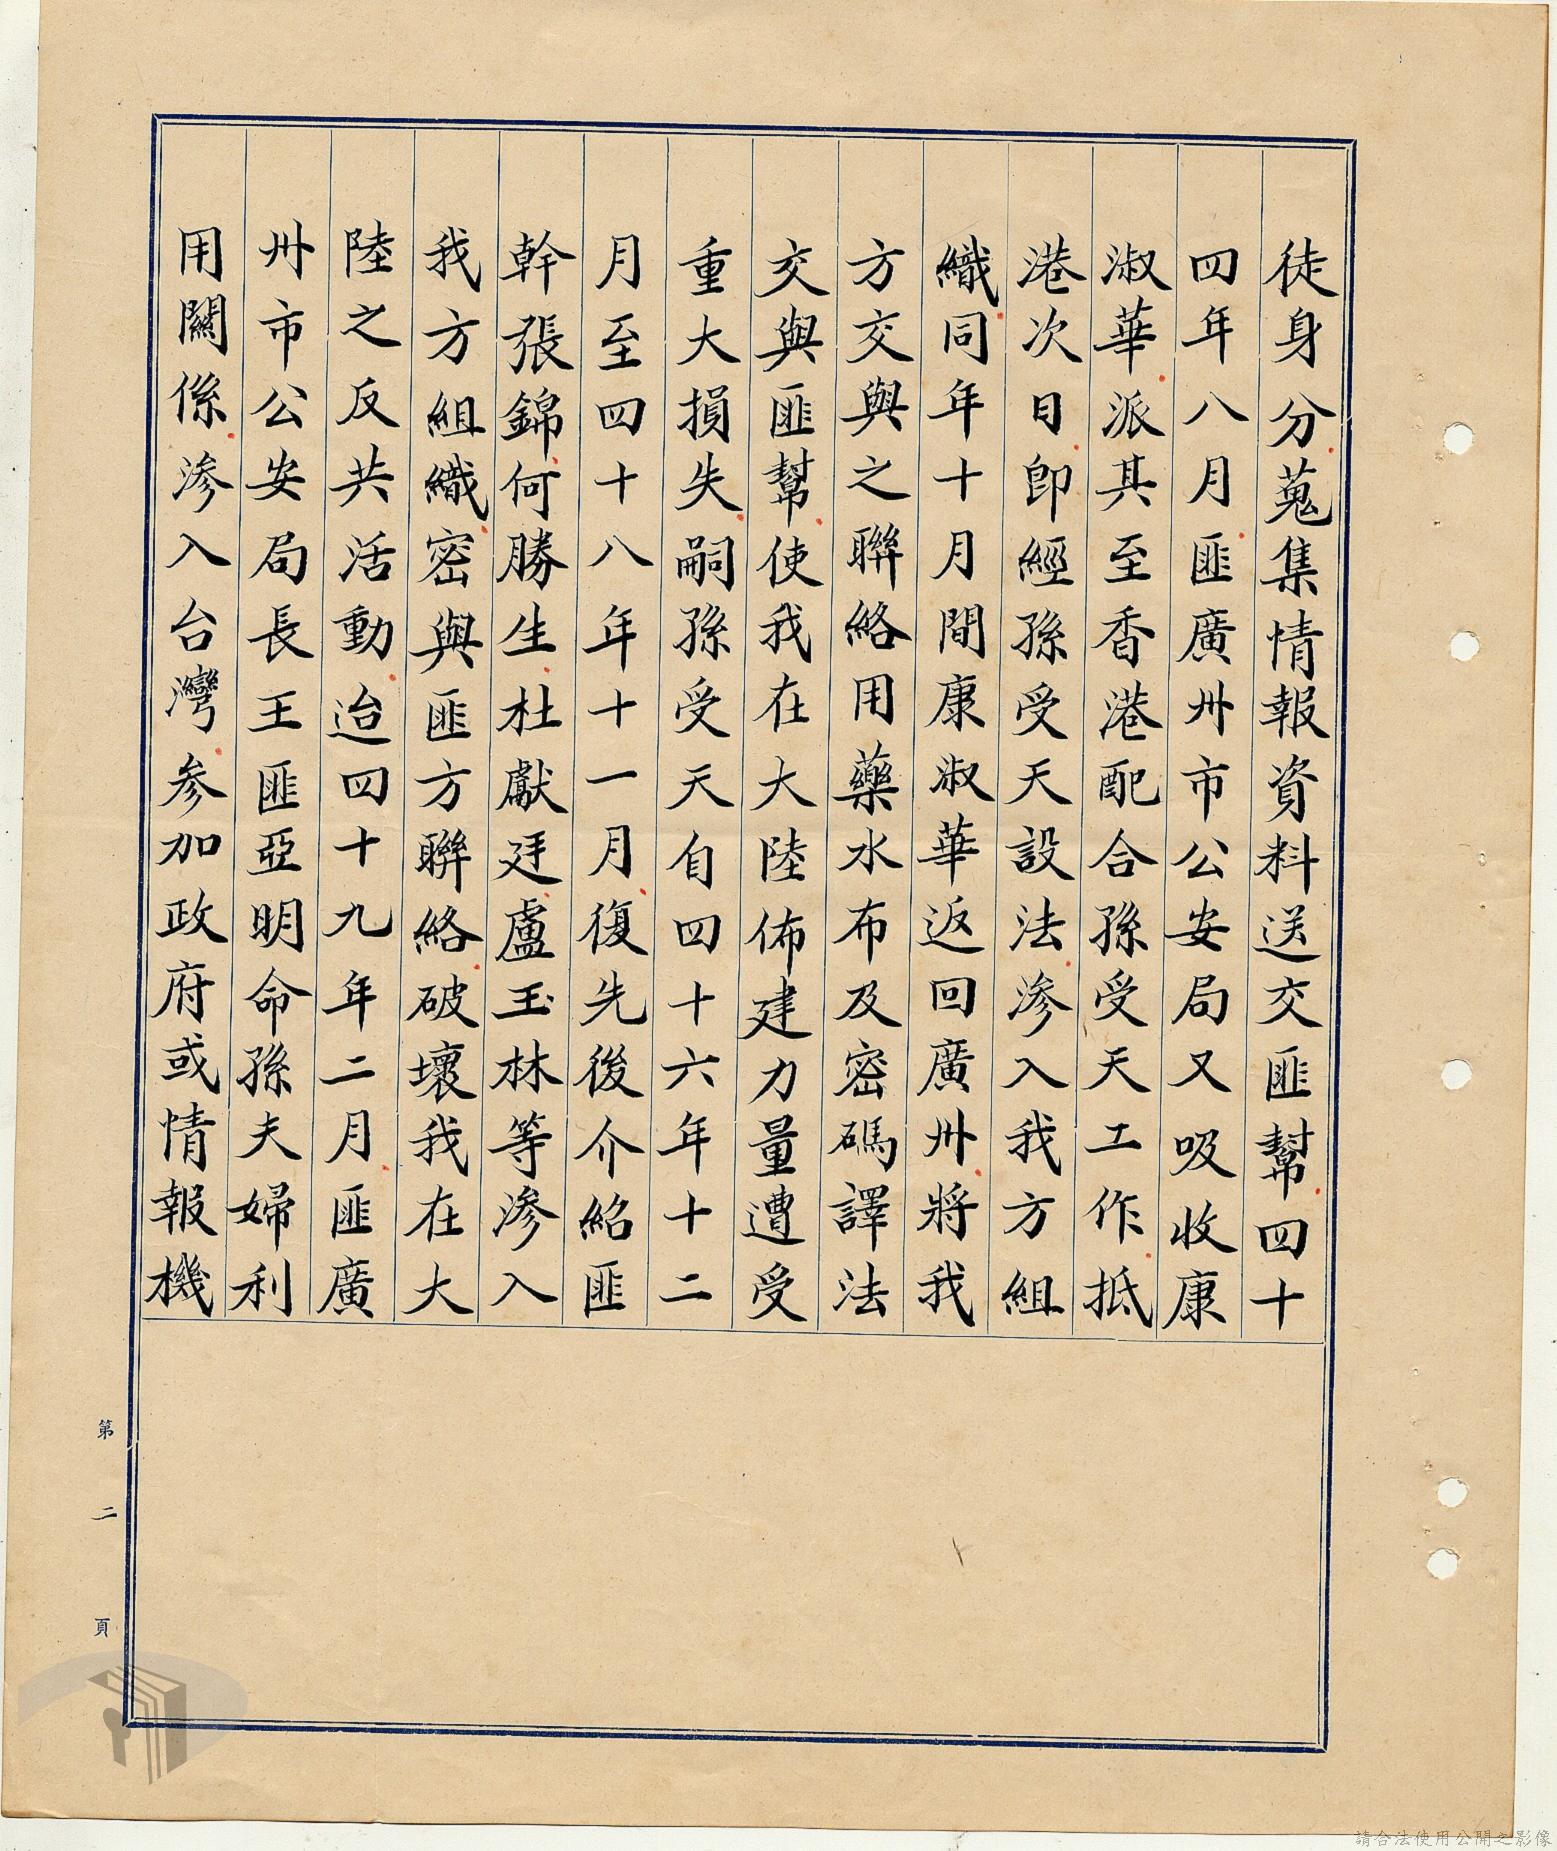 徒身分蒐集情報資料送交匪幫四十
四年八月匪廣州市公安局又吸收康
淑華派其至香港配合孫受天工作抵
港次日即經孫受天設法滲入我方組
織同年十月間康淑華返回廣州將我
方交與之聯絡用藥水布及密碼譯法
交與匪幫使我在大陸佈建力量遭受
重大損失嗣孫受天自四十六年十二
月至四十八年十一月復先後介紹匪
幹張錦何勝生杜獻廷盧玉林等滲入
我方組織密與匪方聯絡破壞我在大
陸之反共活動迨四十九年二月匪廣
州市公安局長王匪亞明命孫夫婦利
用關係滲入台灣參加政府或情報機
第二頁
請合法使用公開之影像